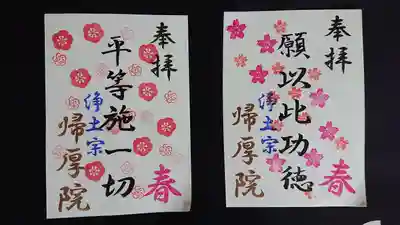 奉拝
春
平等施一切
浄土宗
帰厚院
奉拝
春
願以此功徳
浄土宗
帰厚院